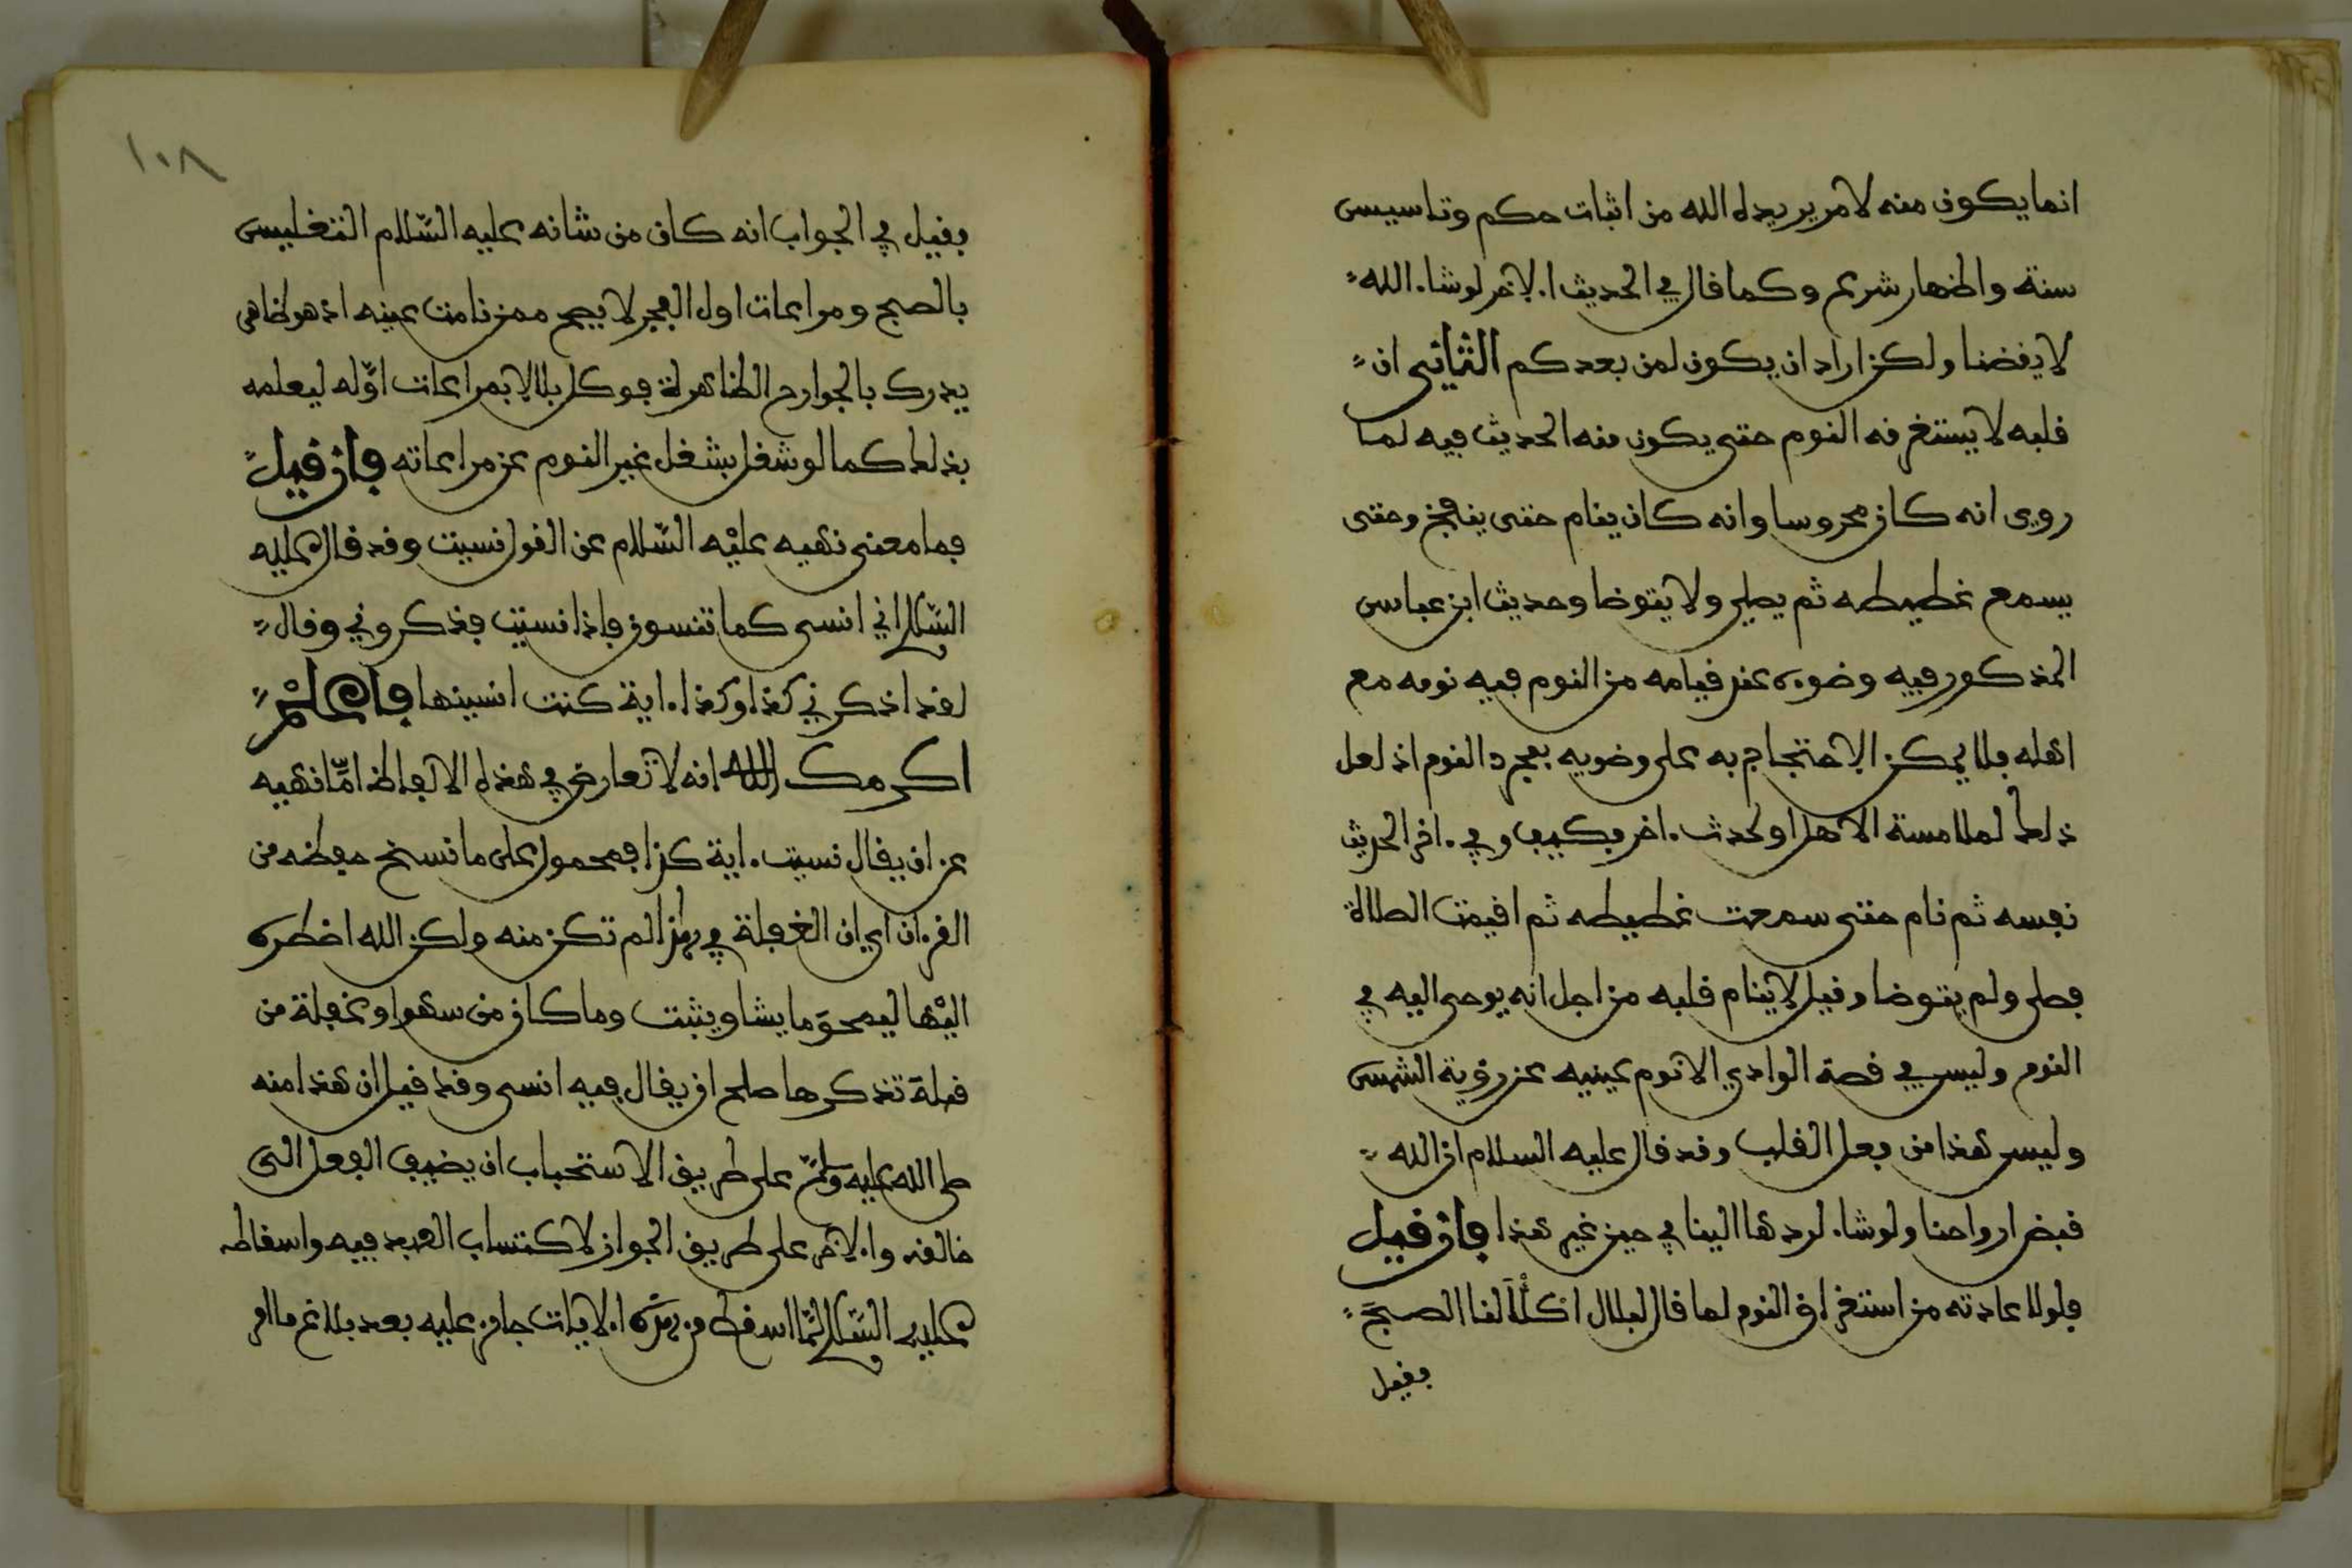 انما يكون منه لامر يريده الله من اثبات حكم وتاسيس
سنة واظهار شرع وكما قال في الحديث الاخر لو شاء الله
لايقضنا ولكن اراد ان يكون لمن بعدكم الثاني ان
قلبه لا يستغرقه النوم حتى يكون منه الحديث فيه لما
روى انه كان محروسا وانه كان ينام حتى ينفخ وحتى
يسمع غطيطه ثم يصلي ولا يتوضا وحديث ابن عباس
المذكور فيه وضوءه عند قيامه من النوم فيه نومه مع
اهله فلا يمكن الاحتجاج به على وضويه بمجرد النوم اذ لعل
ذلك لملامسة الاهل او لحدث ءاخر فكيف وفي ءاخر الحديث
نفسه ثم نام حتى سمعت غطيطه ثم اقيمت الصلاة
فصلى ولم يتوضا وقيل لا ينام قلبه من اجل انه يوحى اليه في
النوم وليس في قصة الوادي الا نوم عينيه عن رؤية الشمس
وليس هذا من فعل القلب وقد قال عليه السلام ان الله
قبض ارواحنا ولو شاء لردها الينا في حين غير هذا فان قيل
فلولا عادته من استغراق النوم لما قال لبلال اكلأ لنا الصبح
فقيل
١٠٨
فقيل في الجواب انه كان من شانه عليه السّلام التغليس
بالصبح ومراعات اول الفجر لا يصح ممن نامت عينه اذ هو ظاهر
يدرك بالجوارح الظاهرة فوكل بلالا بمراعات اوّله ليعلمه
بذلك كما لو شغل بشغل غير النوم عن مراعاته فان قيل
فما معنى نهيه عليْه السّلام عن القول نسيت وقد قال عليه
السّلام اني انسى كما تنسون فاذا نسيت فذكروني وقال
لقد اذكرني كذا وكذا ءاية كنت انسيتها فاعلمْ
اكرمك الله انه لا تعارض في هذه الالفاظ امّا نهيه
عن ان يقال نسيت ءاية كذا فمحمول على ما نسخ حفظه من
القرءان اي ان الغفلة في هذا لم تكن منه ولكن الله اضطره
اليْها ليمحوَ ما يشا ويثبت وما كان من سهو او غفلة من
قبله تذكرها صلح ان يقال فيه انسى وقد قيل ان هذا منه
صلى الله عليه وسلّم على طريق الاستحباب ان يضيف الفعل الى
خالقه والاخر على طريق الجواز لاكتساب العبد فيه واسقاطه
عليه السّلام لمّا اسقط من هذه الايات جايز عليه بعد بلاغ ما امر